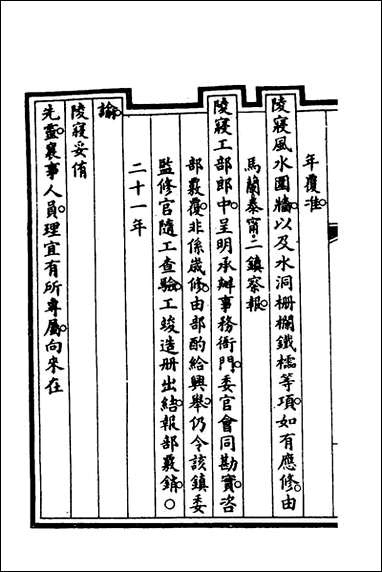 年覆准
陵寢風水圍牆以及水洞栅欄鐵檽等項如有應修由
馬蘭泰甯二鎮察報
陵寢工部郎中呈明承辦事務衙門委官會同勘實咨
部覈覆非係歲修由部酌給興舉仍令該鎮委
監修官隨工查驗工竣造册出結報部覈銷○
二十一年
諭
陵寢妥侑
先靈襄事人員理宜有所專屬向來在